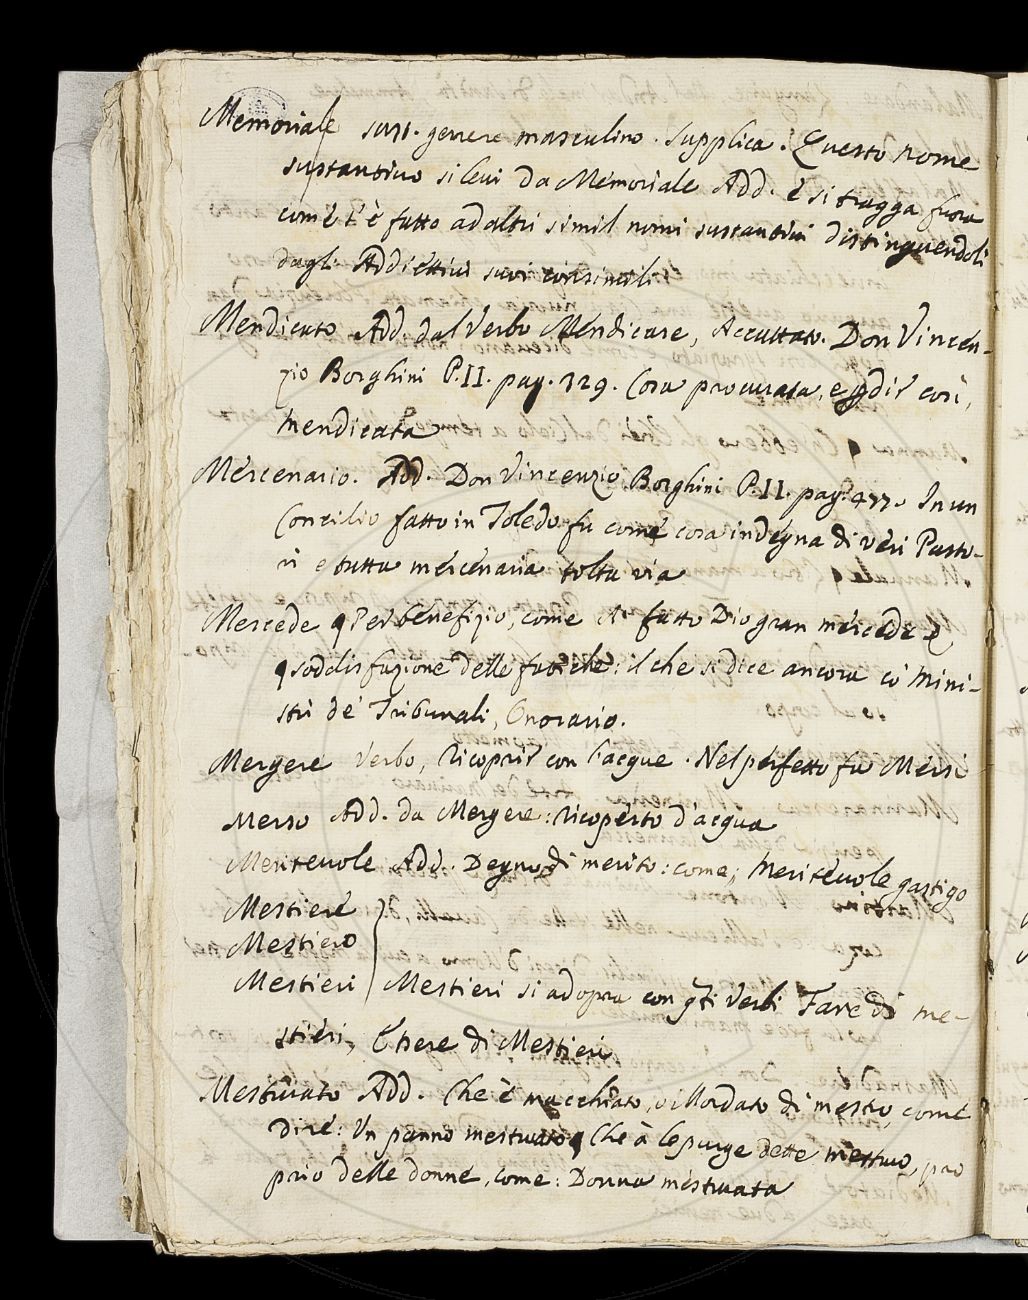 Memoriale sust. genere masculino. Supplica. Questo nome
sustantivo si levi da Memoriale Add. e si tragga fuora
come s'è fatto ad altri simil nomi sustantivi distinguendoli
dagl' Addiettivi suoi consimili
Mendicato Add. dal Verbo Mendicare, Accattato. Don Vincen-
zio Borghini P. II. pag. 329. Cosa procurata, e p dir così,
mendicata
Mercenario. Add. Don Vincenzio Borghini P. II. pag. 477. In un
Concilio fatto in Toledo fu come cosa indegna di veri Pasto-
ri e tutta mercenaria tolta via
Mercede q Per benefizio, come A fatto Dio gran mercede
q soddisfazione delle fatiche: il che si dice ancora co' Mini-
stri de' Tribunali, Onorario.
Mergere Verbo, Ricoprir con l'acque. Nel perfetto fa Mersi
Merso Add. da Mergere: Ricoperto d'acqua
Meritevole Add. Degno di merito: come, Meritevole gastigo
Mestiere
Mestiero
Mestieri Mestieri si adopra con qti Verbi Fare di me-
stieri, Essere di Mestieri
Mestruato Add. Che è macchiato, o illordato di mestruo, come
dire: Un panno mestruato q Che à le purge dette mestruo, pro
prio delle donne, come: Donna mestruata